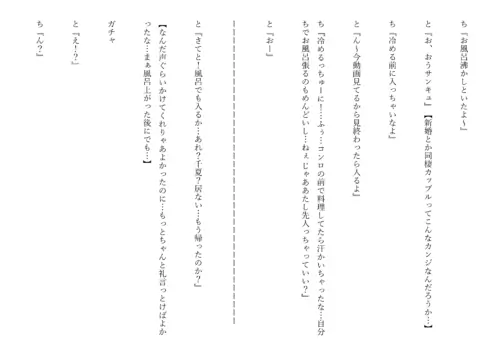 ち『お風呂沸かしといたよ~』
と『お、おうサンキュ』【新婚とか同棲カップルってこんなカンジなんだろうか…】
ち『冷める前に入っちゃいなよ』
と『ん~今動画見てるから見終わったら入るよ』
ち『冷めるっちゅーに!…ふぅ…コンロの前で料理してたら汗かいちゃったな…自分
ちでお風呂張るのもめんどいし…ねぇじゃああたし先入っちゃっていい?』
と『おー』
ーーーーーーーーーーーーーーーーーーーーーーーーーーーー
と『さてと!風呂でも入るか…あれ?千夏?居ない…もう帰ったのか?』
【なんだ声ぐらいかけてくれりゃあよかったのに…もっとちゃんと礼言っとけばよか
ったな…まぁ風呂上がった後にでも…】
ガチャ
と『え!?』
ち『ん?』